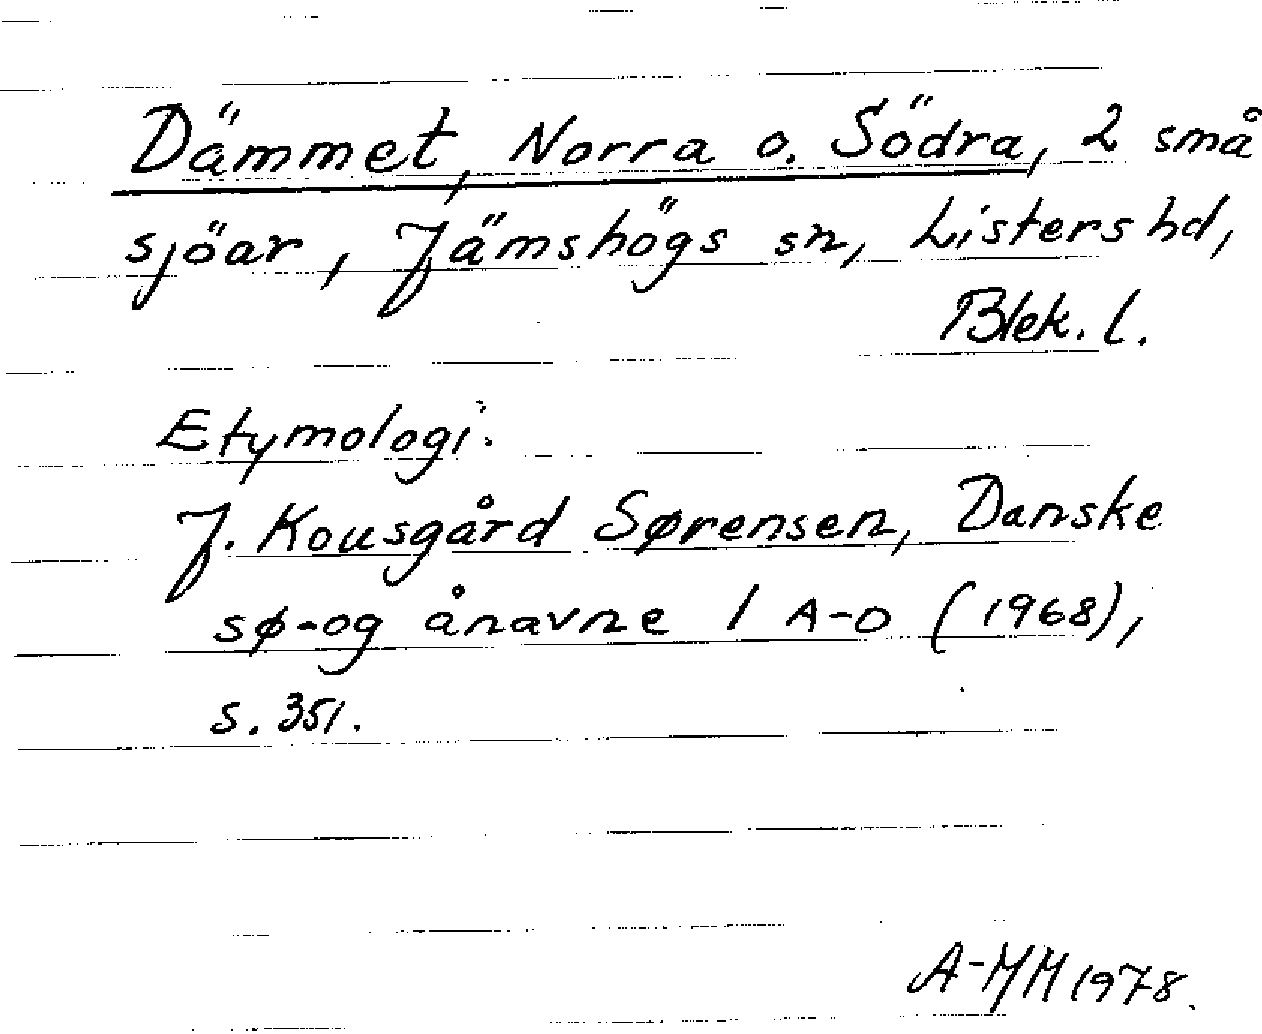 Dämmet, Norra o. Södra, 2 små
sjöar, Jämshögs sn, Listers hd,
Blek. l.
Etymologi:
J. Kousgård Sørensen, Danske
sø-og ånavne 1 A-D (1968),
s. 351.
A-MM 1978.